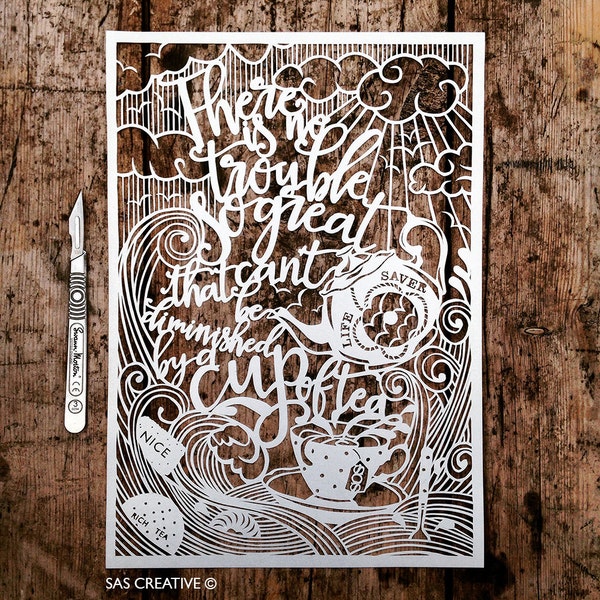 There
is no
trouble
so great
that can't
be
diminished
by a
cup of tea
LIFE SAVER
SOS
NICE
RICH TEA
Swann-Morton
CE
3
SAS CREATIVE ©